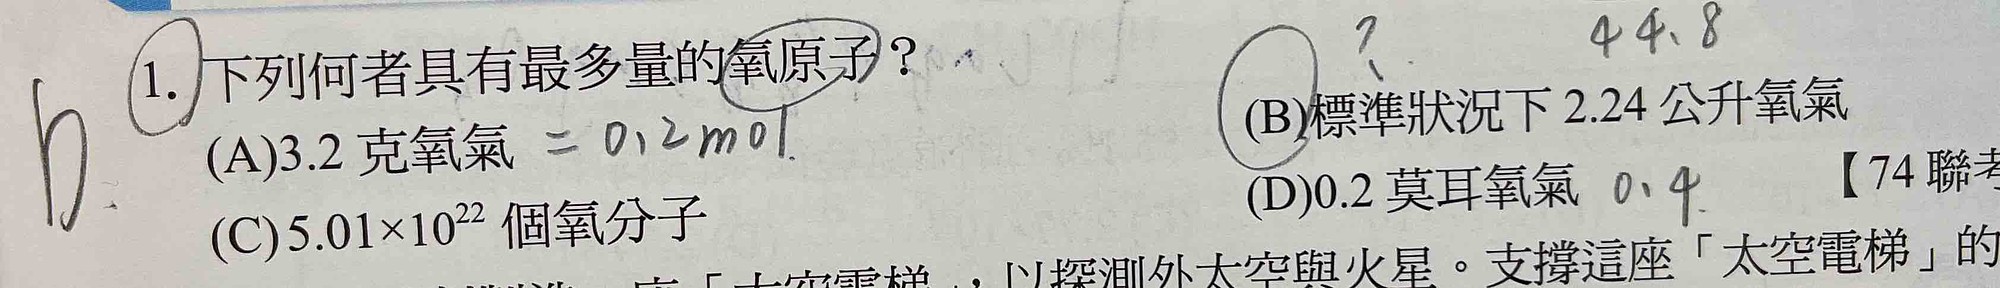 1. 下列何者具有最多量的氧原子？
(A)3.2 克氧氣 = 0.2mol.
? 44.8
(B)標準狀況下 2.24 公升氧氣
(C)5.01×10²² 個氧分子
(D)0.2 莫耳氧氣 0.4 【74 聯考
，以探測外太空與火星。支撐這座「太空電梯」的